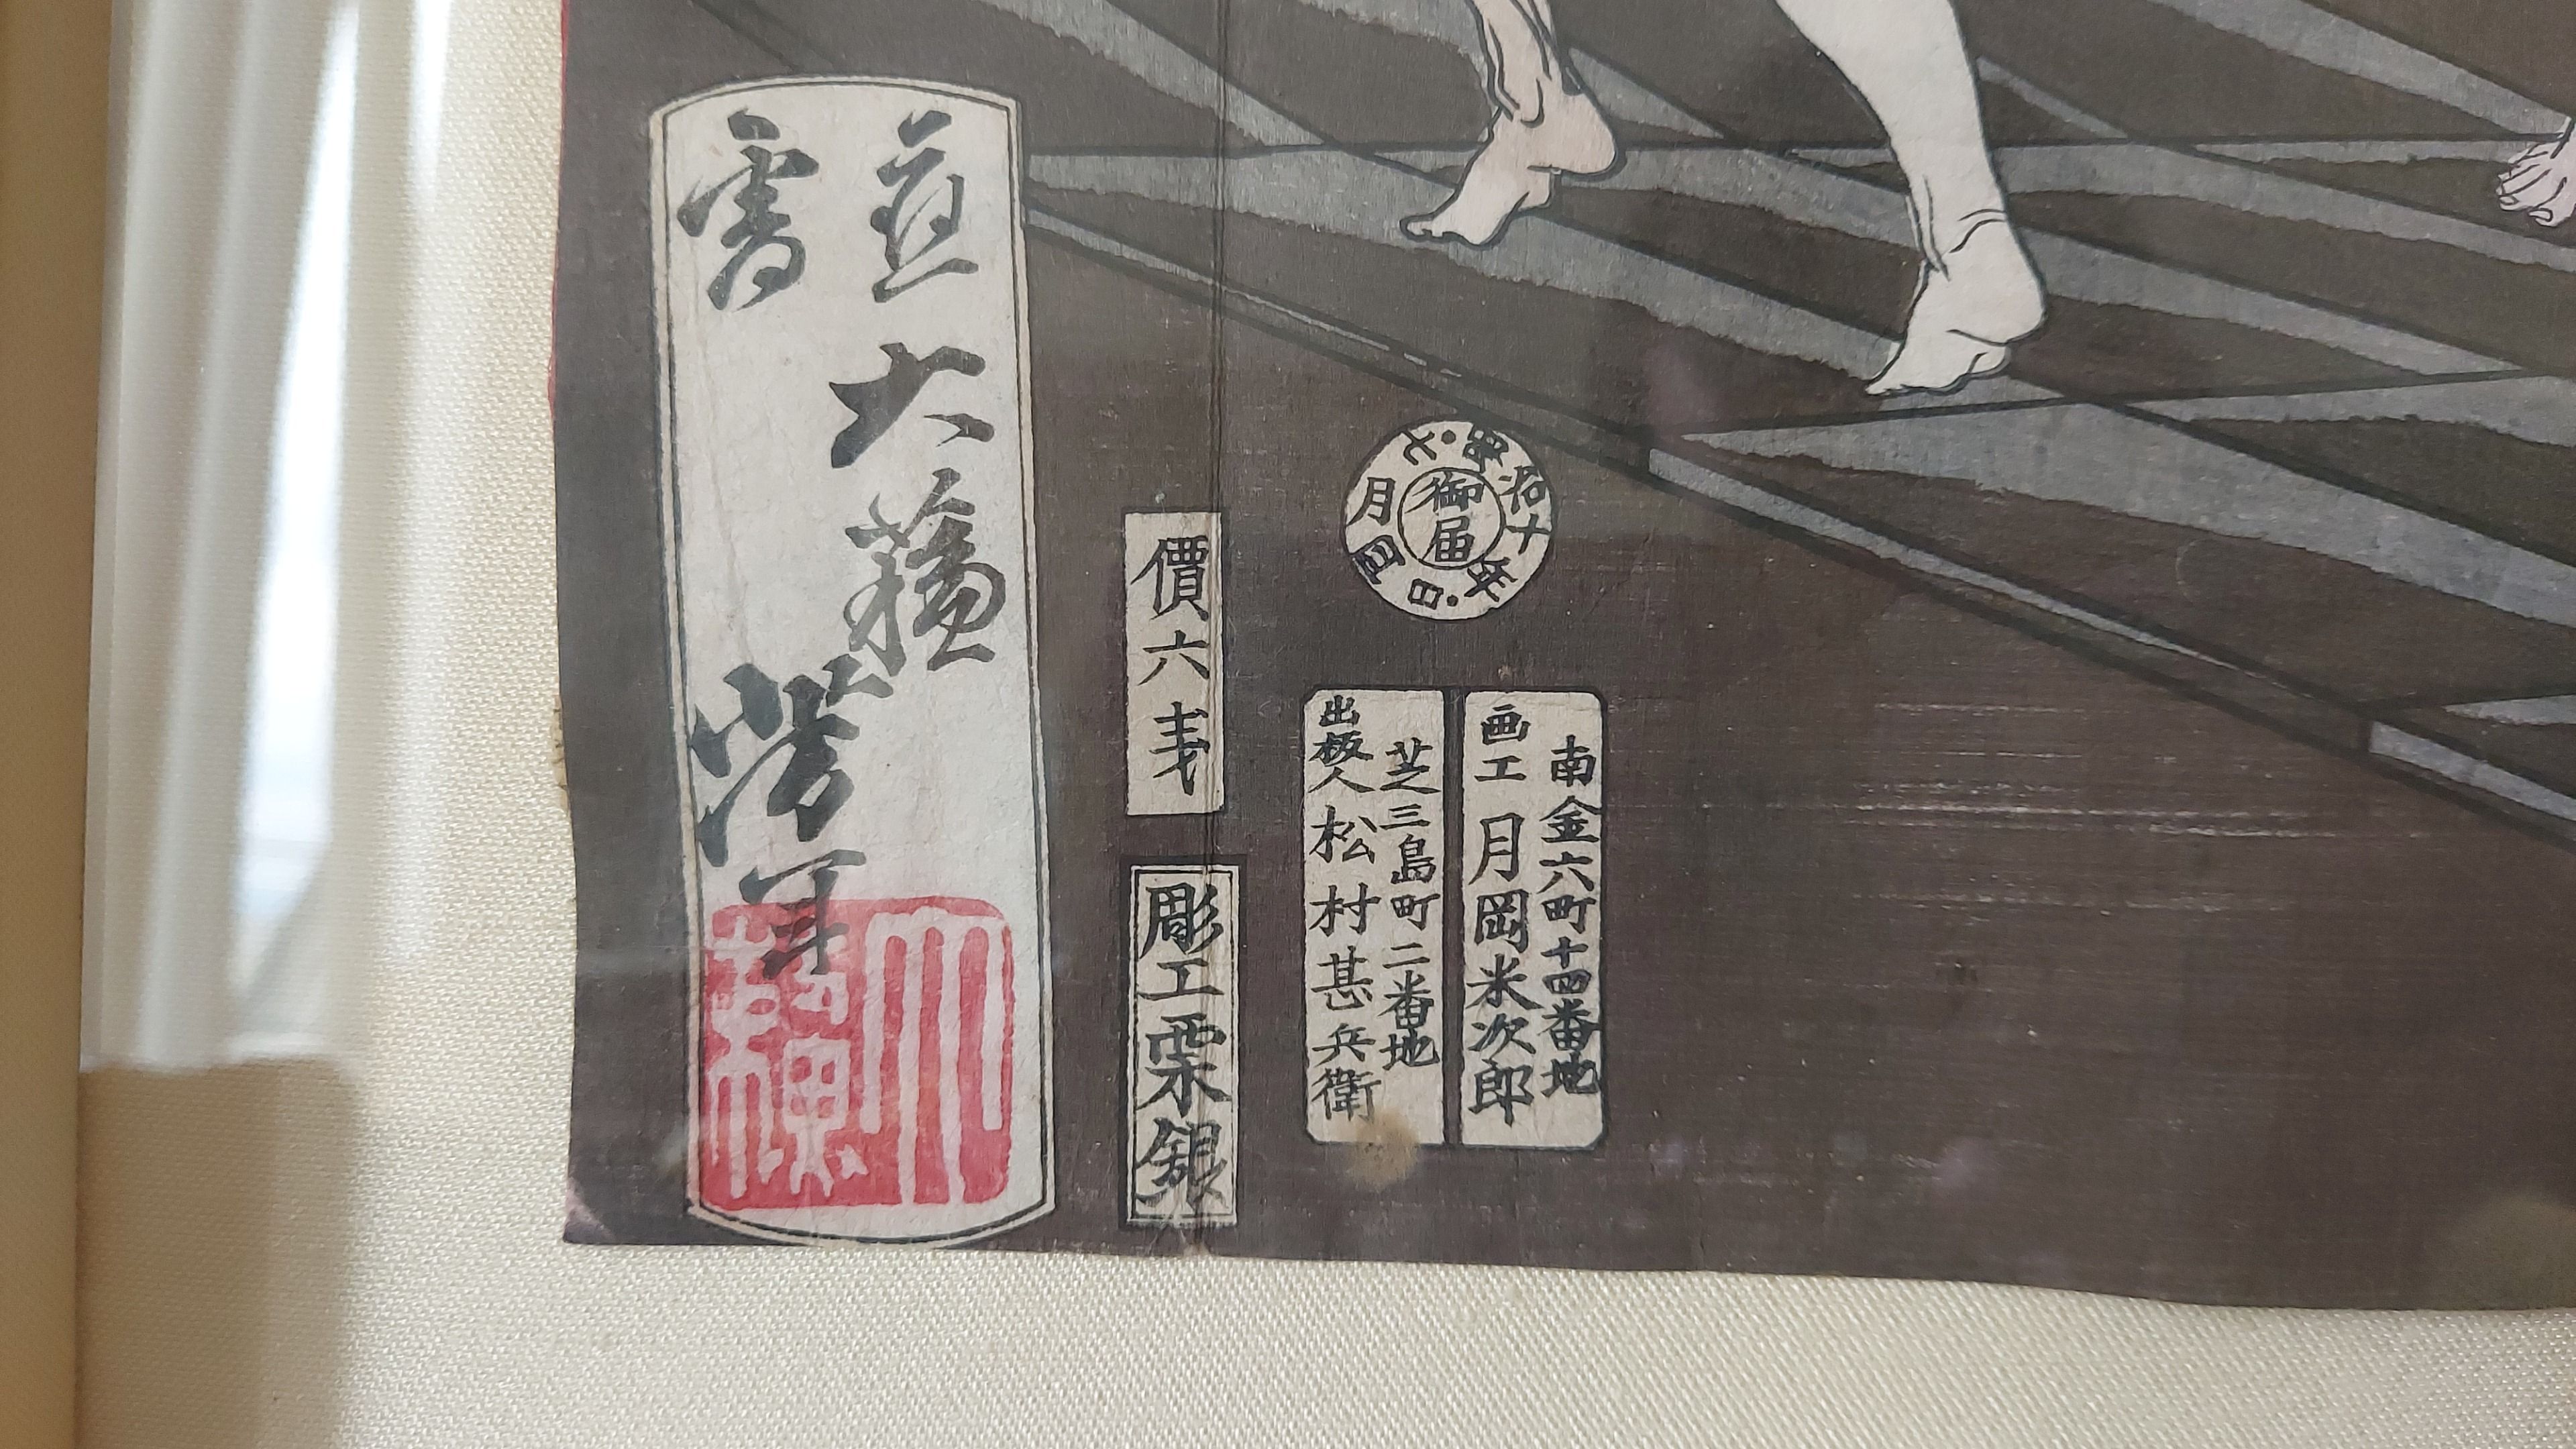 御届
明治十年・七月四日
南金六町十四番地
画工 月岡米次郎
芝三島町二番地
出板人 松村甚兵衛
價六戋
彫工栗銀
應需
大蘇
芳年
大蘇